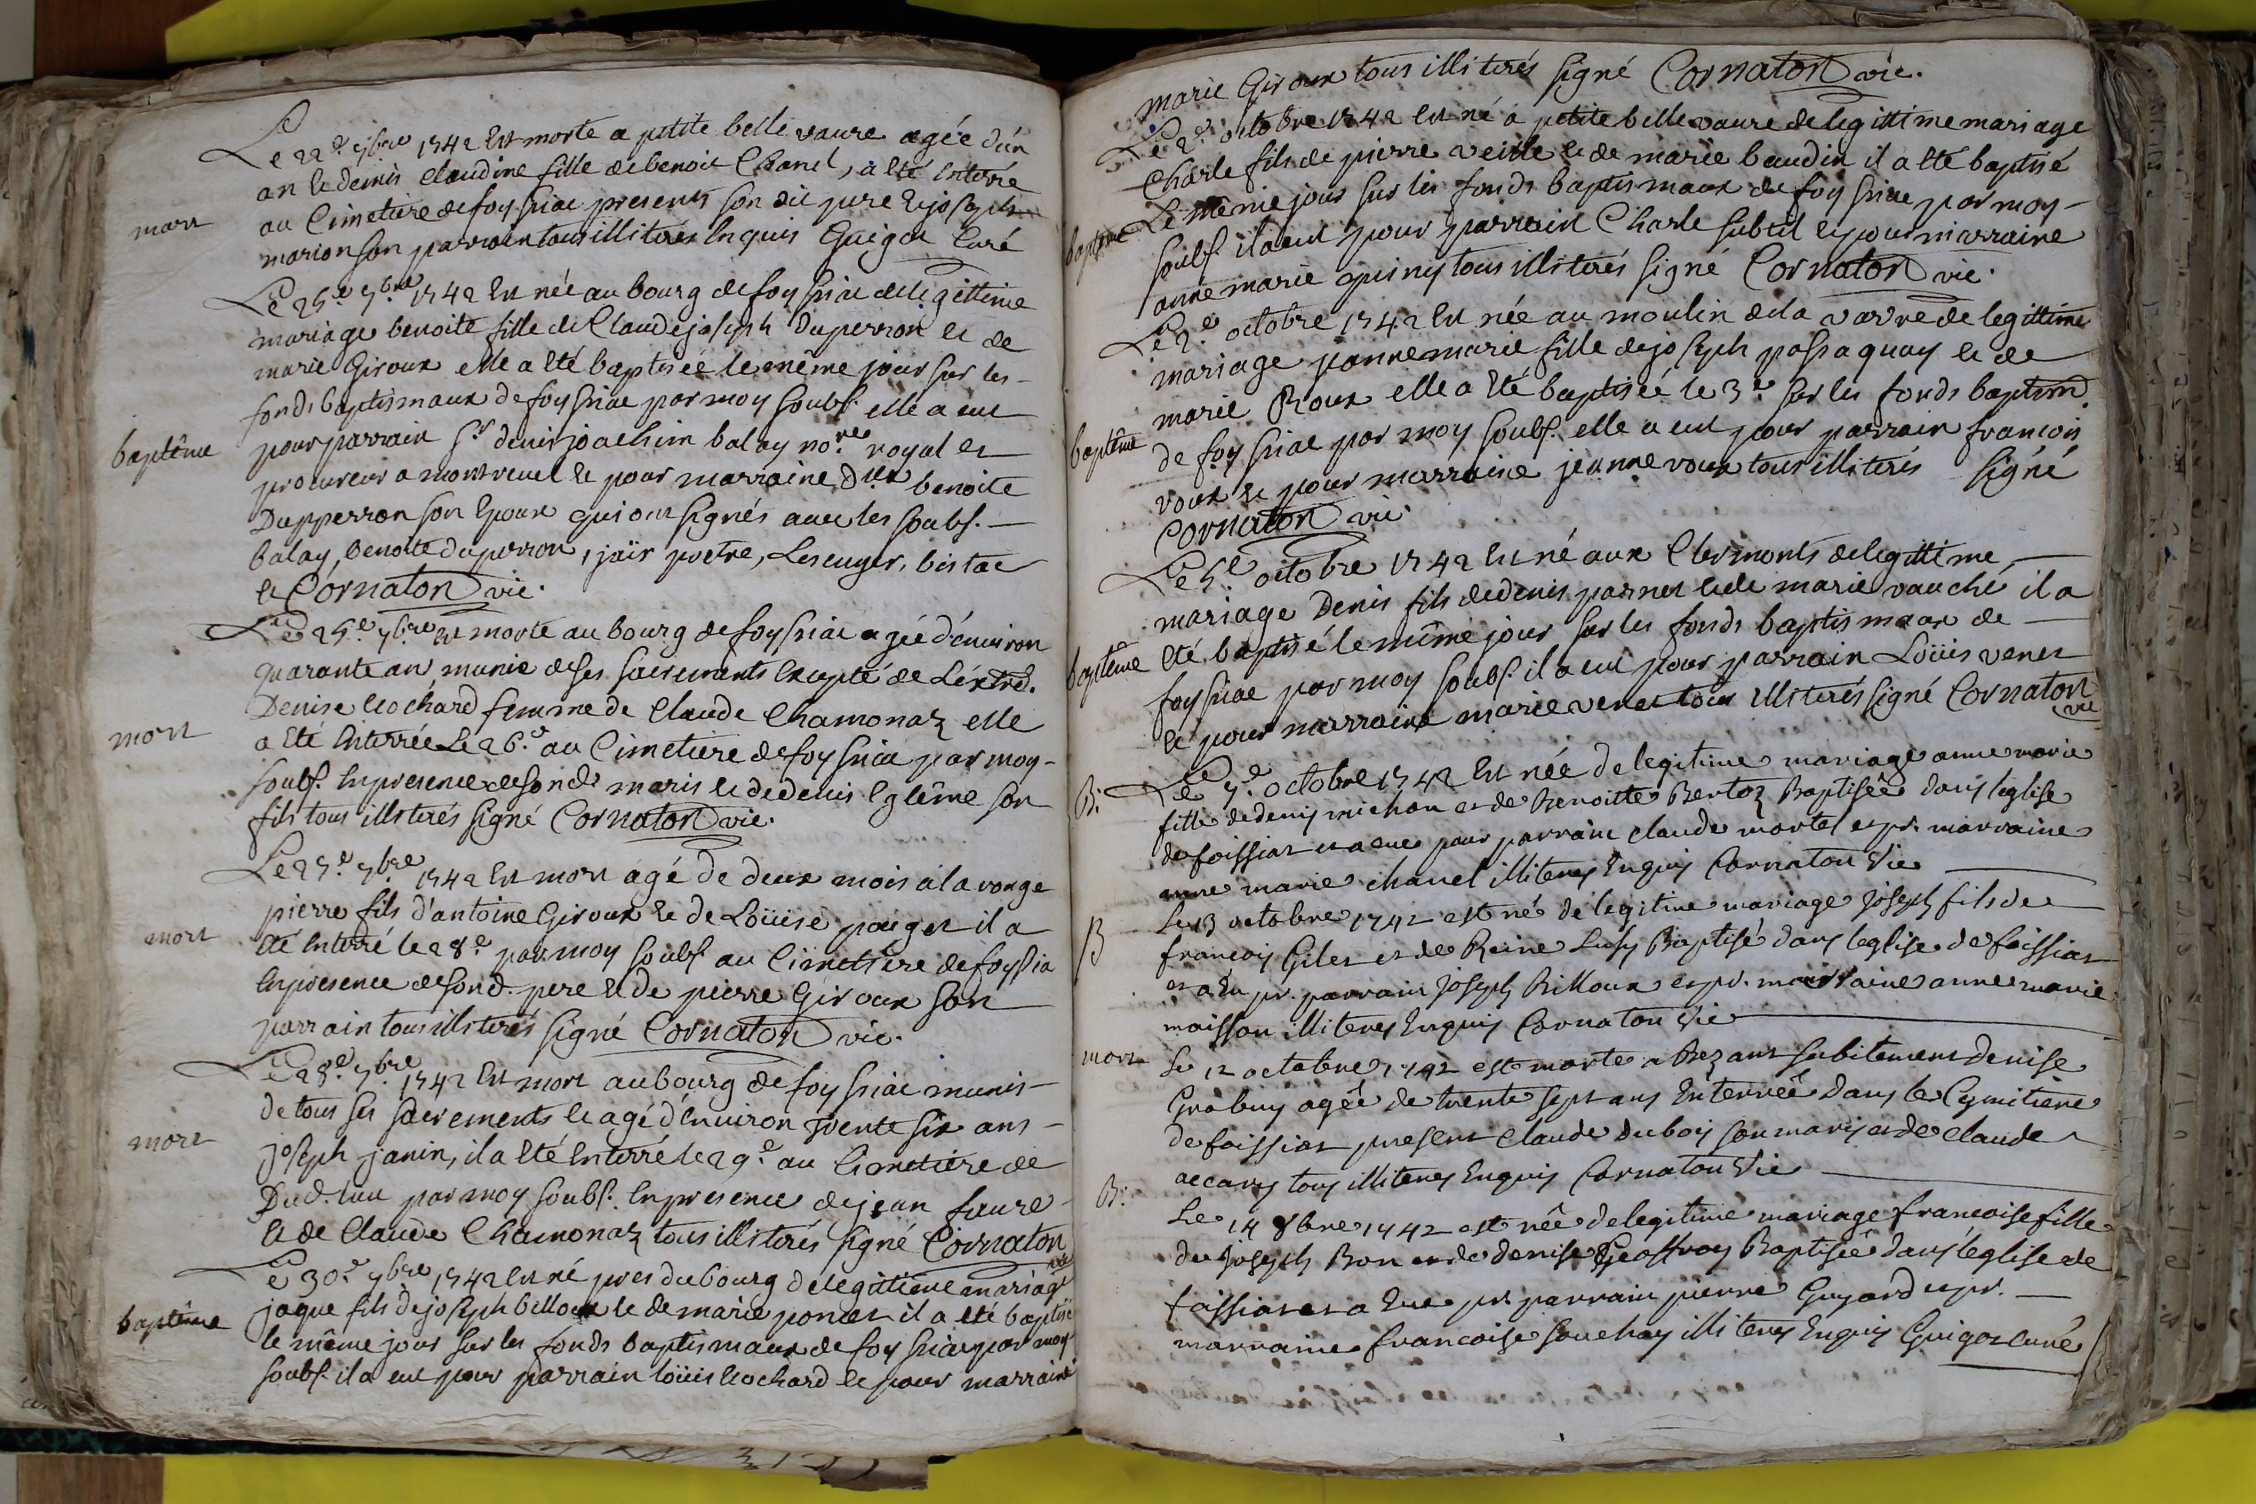 Le 22e 7bre 1742 Est morte a petite belle vavre agée d'un
an et demis claudine fille de benoit Chanel, a Eté Enterré
mort
au Cimetiere de foyssiac presents son dit pere et joseph
marion son parrain tous illiterés Enquis Guigot Curé
Le 25e 7bre 1742 Est née au bourg de foyssiac de legittime
mariage benoite fille de Claude joseph Duperron et de
marie Giroux elle a Eté baptisée le même jour sur les
fonds baptismaux de foyssiac par moy soubs. elle a eut
baptême
pour parrain Sr denis joachim balay nore royal et
procureur a montrevel et pour marraine Dlle benoite
Dupperron son Epoux qui ont signés avec les soubs.
balay, benoite duperron, jaïr prêtre, Lescuyer, bistac
et Cornaton vic.
Le 25e 7bre Est morte au bourg de foyssiac agée d'environ
quarante an, munie de ses sacrements Excepté de L'extrê.
Denise Cochard femme de Claude Chamonaz elle
mort
a Eté Enterrée Le 26e au Cimetiere de foyssiac par moy
soubs. En presence de sond. maris et de denis Eglême son
fils tous illiterés signé Cornaton vic.
Le 27e 7bre 1742 Est mort agé de deux mois a la ronge
pierre fils d'antoine Giroux et de Loüise pauget il a
mort
Eté Enterré le 28e par moy soubs. au Cimetiere de foyssia
En presence de sond. pere et de pierre Giroux son
parrain tous illiterés signé Cornaton vic.
Le 28e 7bre 1742 Est mort au bourg de foyssiac munis
de tous ses sacrements et agé d'environ trente six ans
mort
joseph janin, il a Eté Enterré le 29e au Cimetiere de
Dud. lieu par moy soubs. En presence de jean faure
et de Claude Chamonaz tous illiterés signé Cornaton
vic
Le 30e 7bre 1742 Est né pres du bourg de legittime mariage
jaque fils de joseph billoux et de marie poncet il a Eté baptisé
baptême
le même jour sur les fonds baptismaux de foyssiac par moy
soubs. il a eut pour parrain loüis Cochard et pour marraine
marie Giroux tous illiterés signé Cornaton vic.
Le 2e octobre 1742 Est né a petite belle vavre de legittime mariage
Charle fils de pierre veille et de marie baudin il a Eté baptisé
baptême
Le même jour sur les fonds baptismaux de foyssiac par moy
soubs. il a eut pour parrain Charle subtil et pour marraine
anne marie quiny tous illiterés signé Cornaton vic.
Le 2e octobre 1742 Est née au moulin de la varne de legittime
mariage janne marie fille de joseph passaquay et de
marie Roux elle a Eté baptisée le 3e sur les fonds baptism.
baptême
de foyssiac par moy soubs. elle a eut pour parrain francois
roux et pour marraine jeanne roux tous illiterés signé
Cornaton vic.
Le 5e octobre 1742 Est né aux Clermonts de legittime
mariage Denis fils de denis pasnet et de marie vauché il a
baptême
Eté baptisé le même jour sur les fonds baptismaux de
foyssiac par moy soubs. il a eut pour parrain Loüis venet
et pour marraine marie venet tous illiterés signé Cornaton
vic
B:
Le 7e octobre 1742 Est née de legitime mariage anne marie
fille de denis michon et de Benoitte Bertoz Baptisée dans leglise
de foissiat et a eue pour parrain claude mortel et pr. marraine
anne marie chanel illiterés Enquis Cornaton Vic
B
Le 13 octobre 1742 est né de legitime mariage joseph fils de
francois Gilet et de Reine Lusy Baptisé dans leglise de foissiat
et a Eu pr. parrain joseph Billoux et pr. marraine anne marie
moisson illiterés Enquis Cornaton Vic
mort
Le 12 octobre 1742 est morte a Bezant subitement denise
Grabuy agée de trente sept ans Enterreé dans le Cymitiere
de foissiat present claude dubois son maris et de claude
accary tous illiterés Enquis Cornaton Vic
B:
Le 14 8bre 1742 est née de legitime mariage francoise fille
de joseph Bon et de denise Geoffroy Baptisée dans l'eglise de
foissiat et a Eue pr. parrain pierre Guyard et pr.
marraine francoise souchay illiterés Enquis Guigot curé